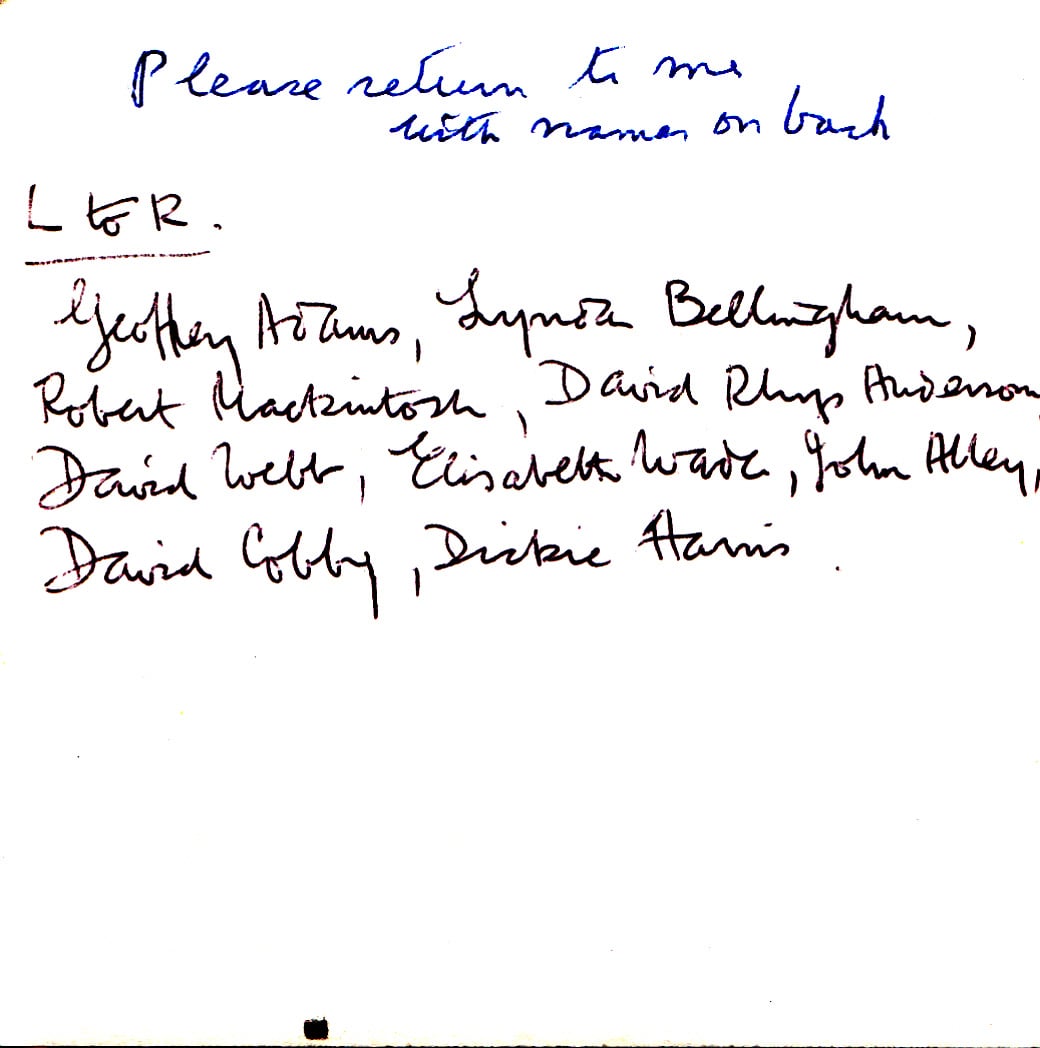 Please return to me
with names on back
L to R.
Geoffrey Adams, Lynda Bellingham,
Robert Mackintosh, David Rhys Anderson
David Webb, Elisabeth Wade, John Alley,
David Cobby, Dickie Harris.